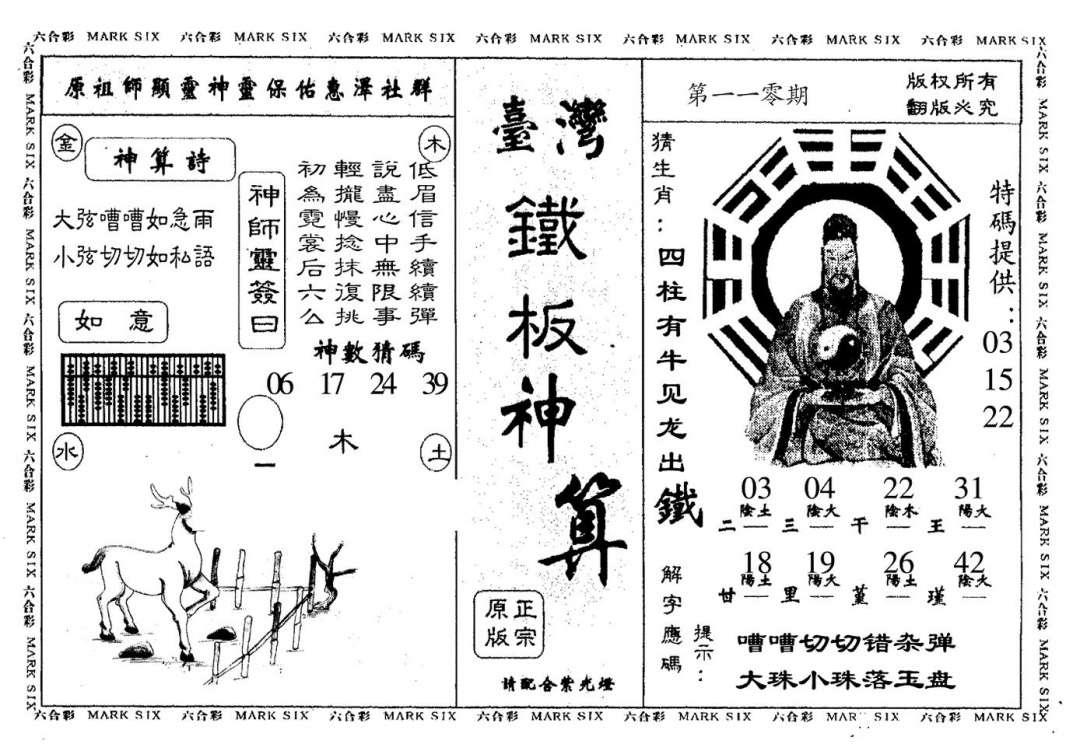 六合彩 MARK SIX 六合彩 MARK SIX 六合彩 MARK SIX 六合彩 MARK SIX 六合彩 MARK SIX 六合彩 MARK SIX 六合彩 MARK SIX
六合彩 MARK SIX 六合彩 MARK SIX 六合彩 MARK SIX 六合彩 MARK SIX 六合彩 MARK SIX
原祖師顯靈神靈保佑惠澤社群
金
木
神算詩
大弦嘈嘈如急雨
小弦切切如私語
如意
神師靈簽曰
低眉信手續續彈
說盡心中無限事
輕攏慢捻抹復挑
初為霓裳后六么
神數猜碼
06 17 24 39
木
水
土
臺灣
鐵板神算
正宗
原版
請配合紫光燈
第一一零期
版权所有
翻版必究
猜生肖：四柱有牛见龙出鐵
特碼提供：
03
15
22
03 04 22 31
陰土 陰火 陰木 陽火
二一 三一 干一 王一
18 19 26 42
陽土 陽火 陽土 陰火
甘一 里一 堇一 瑾一
解字應碼
提示：
嘈嘈切切错杂弹
大珠小珠落玉盘
六合彩 MARK SIX 六合彩 MARK SIX 六合彩 MARK SIX 六合彩 MARK SIX 六合彩 MARK SIX
六合彩 MARK SIX 六合彩 MARK SIX 六合彩 MARK SIX 六合彩 MARK SIX 六合彩 MARK SIX 六合彩 MARK SIX 六合彩 MARK SIX